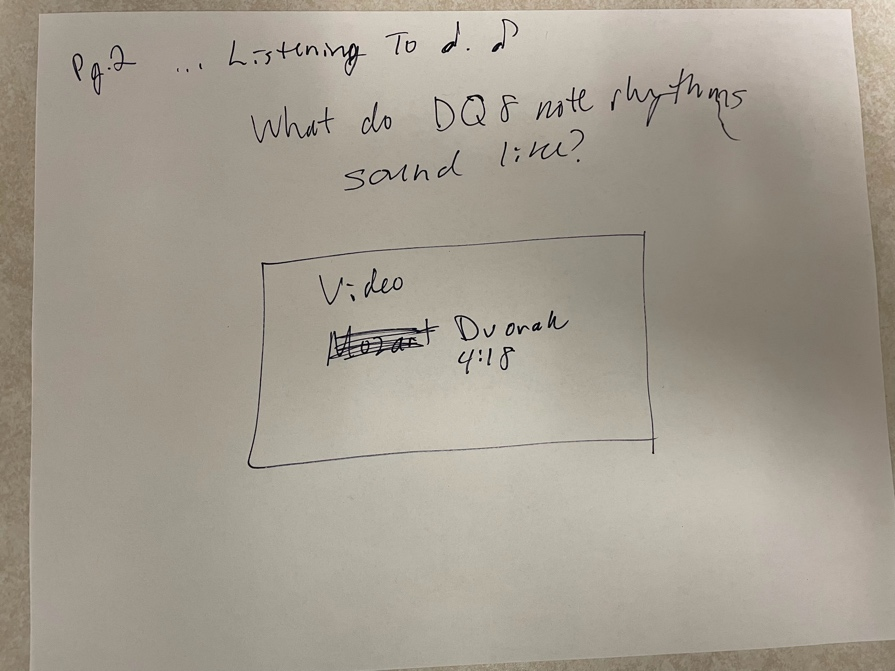 Pg.2 ... Listening To ♩. ♪
What do DQ8 note rhythms
sound like?
Video
Mozart Dvorak
4:18